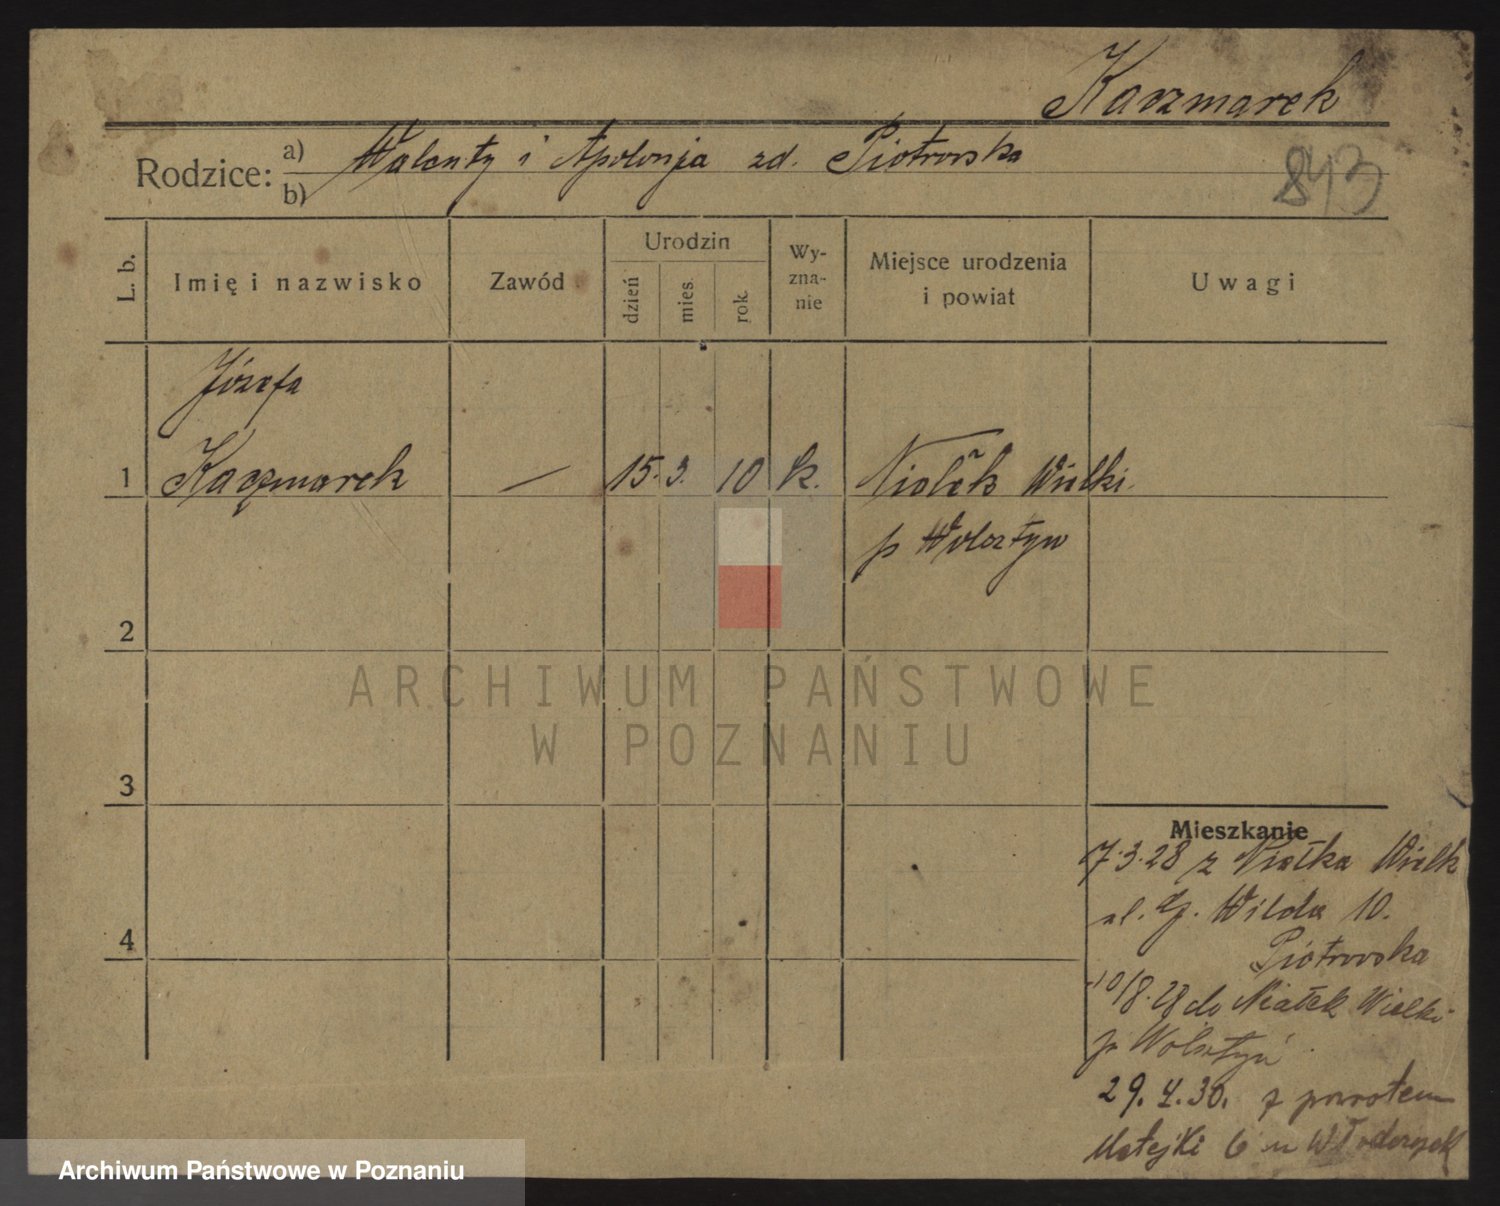 Kaczmarek
Rodzice: a) b) Walenty i Apolonja zd. Piotrowska
843
L. b.
Imię i nazwisko
Zawód
Urodzin
dzień
mies.
rok.
Wy-
zna-
nie
Miejsce urodzenia
i powiat
Uwagi
Józefa
1 Kaczmarek — 15. 3. 10 k. Niałek Wielki
p Wolsztyn
2
3
4
Mieszkanie
7.3.28 z Niałka Wielk
ul. G. Wilda 10.
Piotrowska
10/8.28 do Niałek Wielki
p Wolsztyń
29.4.30. z powrotem
Matejki 6 u
ARCHIWUM PAŃSTWOWE
W POZNANIU
Archiwum Państwowe w Poznaniu